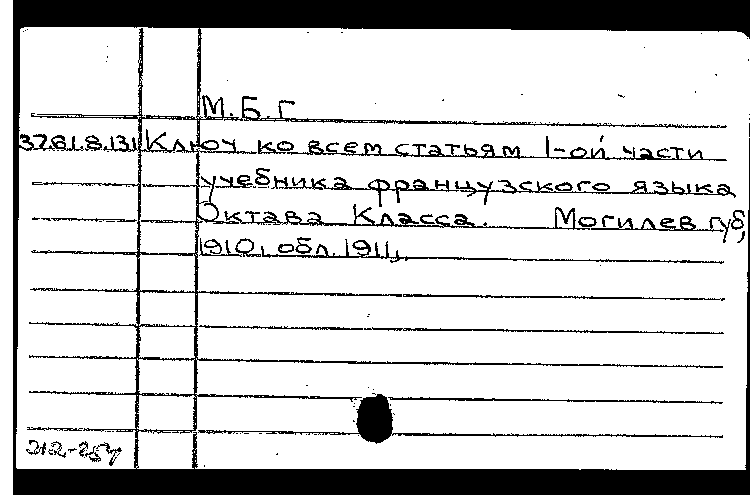 М.Б.Г.
3781.8.131 Ключ ко всем статьям 1-ой части
учебника французского языка
Октава Класса. Могилев губ,
1910, обл. 1911,.
212-254